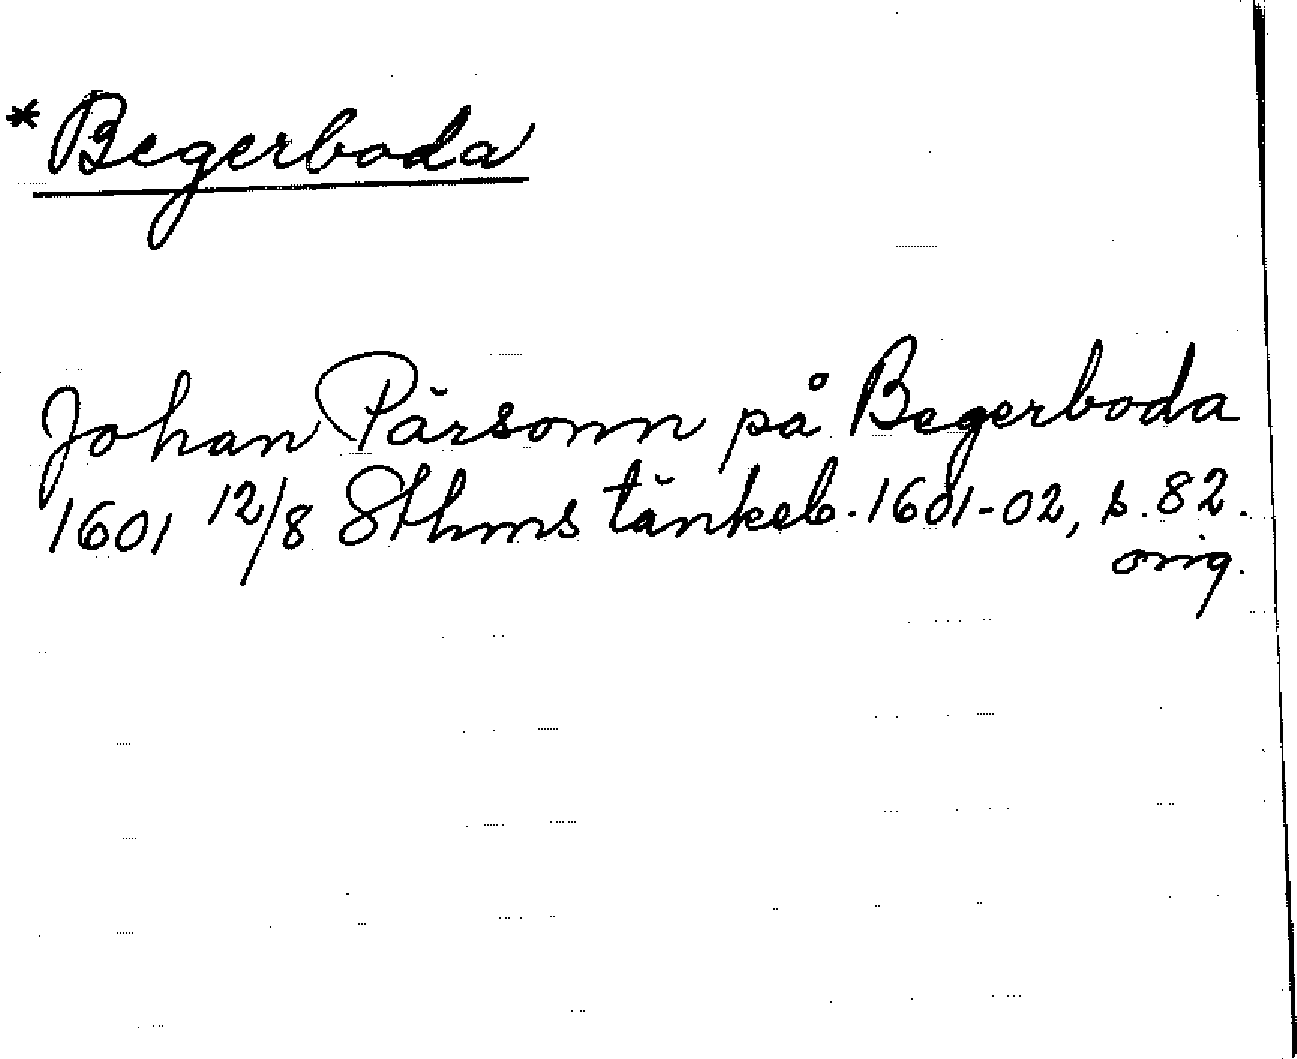 * Begerboda
Johan Pärsonn på Begerboda
1601 12/8 Sthms tänkeb. 1601-02, s. 82.
orig.